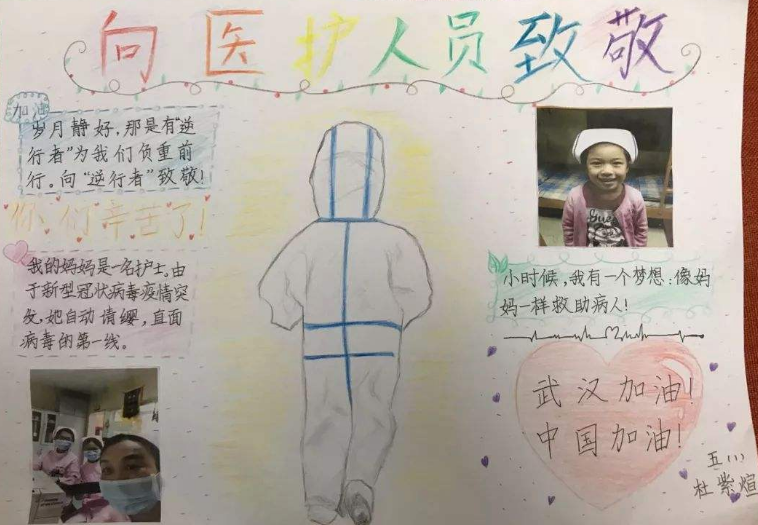 向医护人员致敬
加油
岁月静好,那是有“逆
行者”为我们负重前
行。向“逆行者”致敬!
你们辛苦了!
我的妈妈是一名护士。由
于新型冠状病毒疫情突
发,她自动请缨,直面
病毒的第一线。
小时候,我有一个梦想:像妈
妈一样救助病人!
武汉加油!
中国加油!
五(1)
杜紫煊